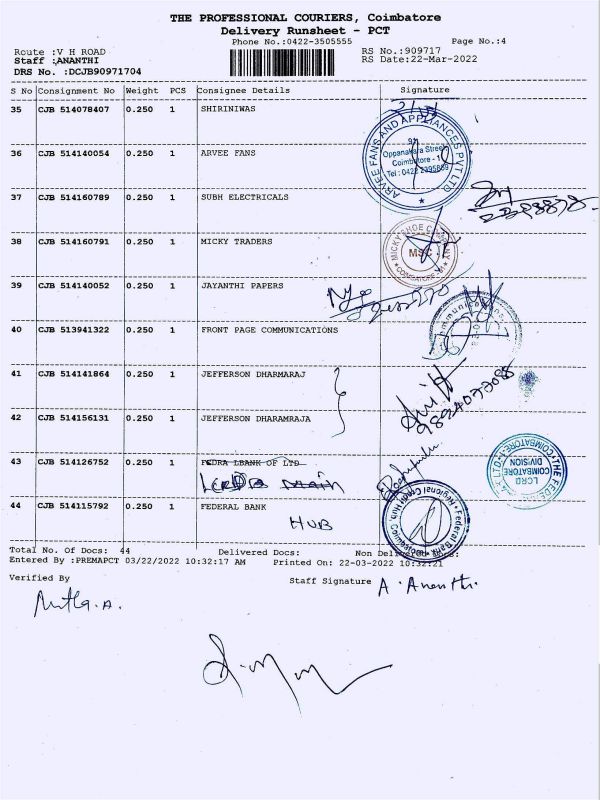 THE PROFESSIONAL COURIERS, Coimbatore
Delivery Runsheet - PCT
Phone No.:0422-3505555
Page No.:4
Route :V H ROAD
RS No.:909717
Staff :ANANTHI
RS Date:22-Mar-2022
DRS No. :DCJB90971704
S No Consignment No Weight PCS Consignee Details Signature
35 CJB 514078407 0.250 1 SHIRINIWAS
36 CJB 514140054 0.250 1 ARVEE FANS
ARVEE FANS AND APPLIANCES PVT LTD
Oppanakara Street
Coimbatore - 1
Tel : 0422 2395889
37 CJB 514160789 0.250 1 SUBH ELECTRICALS
38 CJB 514160791 0.250 1 MICKY TRADERS
MICKY SHOE COMPANY
MSC
39 CJB 514140052 0.250 1 JAYANTHI PAPERS
40 CJB 513941322 0.250 1 FRONT PAGE COMMUNICATIONS
41 CJB 514141864 0.250 1 JEFFERSON DHARMARAJ
42 CJB 514156131 0.250 1 JEFFERSON DHARAMRAJA
43 CJB 514126752 0.250 1 FEDRA LBANK OF LTD
LCRD
COIMBATORE
DIVISION
44 CJB 514115792 0.250 1 FEDERAL BANK
HUB
Total No. Of Docs: 44 Delivered Docs: Non Delivered Docs:
Entered By :PREMAPCT 03/22/2022 10:32:17 AM Printed On: 22-03-2022 10:32:21
Verified By
Staff Signature A. Ananthi.